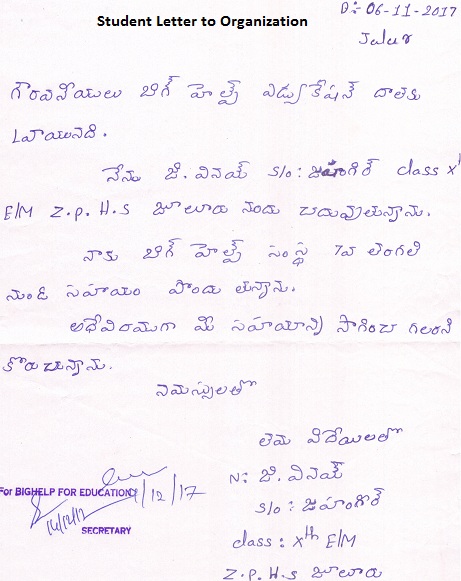 Student Letter to Organization
D:- 06-11-2017
Jalur
గౌరవనీయులు బిగ్ హెల్ప్ ఎడ్యుకేషన్ దాతకు
వ్రాయునది.
నేను జి. వినయ్ S/o: జహంగీర్ class X
E/M Z.p.H.s జూలూరు నందు చదువుతున్నాను.
నాకు బిగ్ హెల్ప్ సంస్థ 7వ తరగతి
నుండి సహాయం పొందు తున్నాను.
అదేవిధముగా మీ సహాయాన్ని సాగించ గలరని
కోరుచున్నాను.
నమస్సులతో
N: జి. వినయ్
S/o : జహంగీర్
class : Xth E/M
Z.P.H.s జూలూరు
For BIGHELP FOR EDUCATION
/12/17
14/12/17
SECRETARY